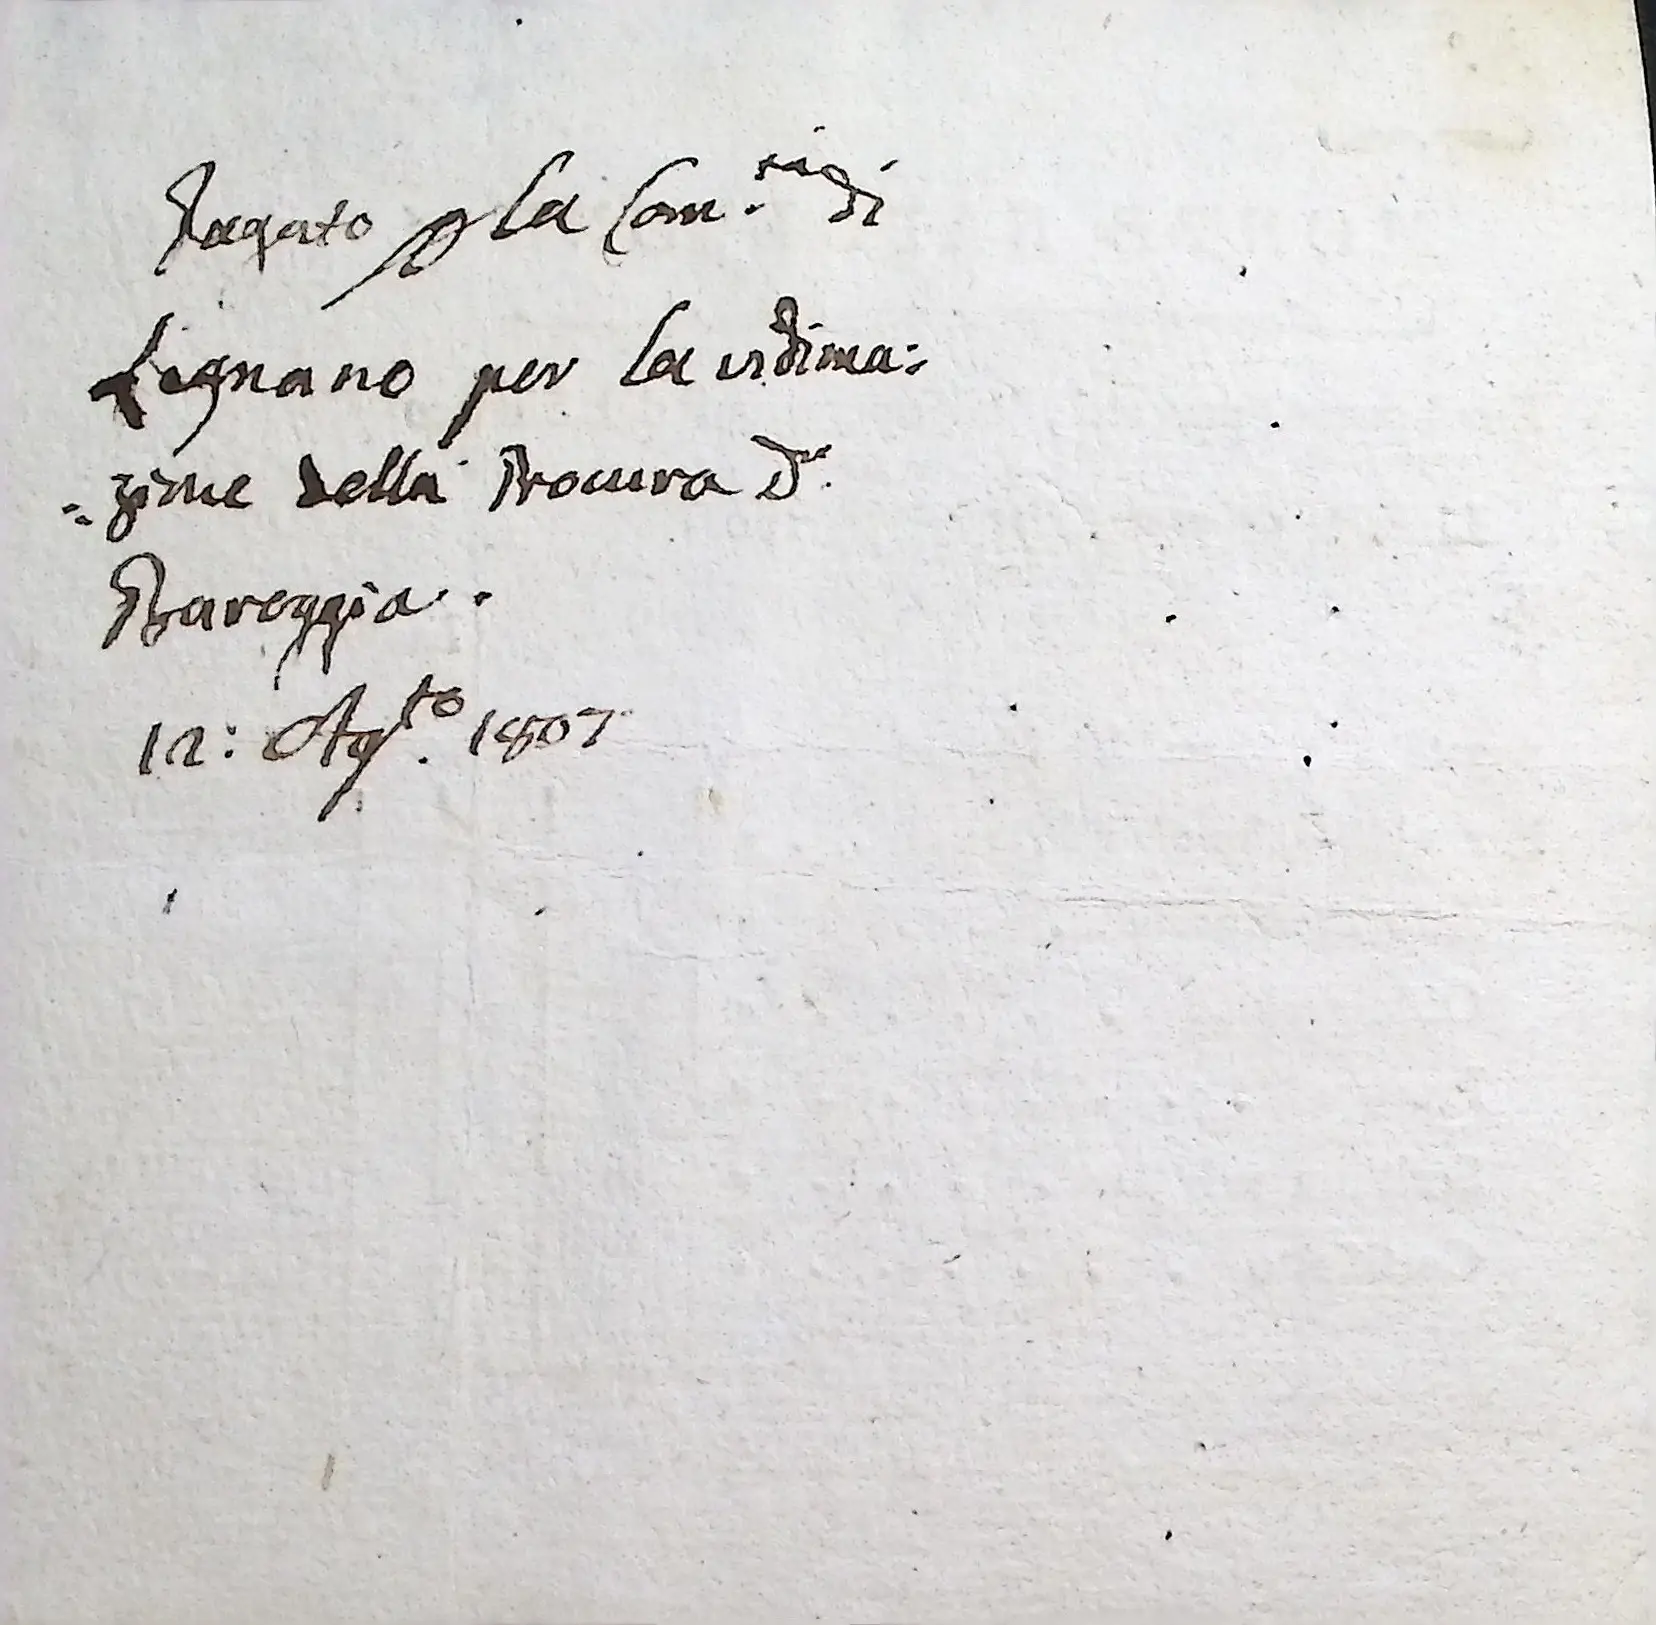 Pagato p la Com.ta di
Legnano per la vidima:
=zione della Procura D.
Bareggia.
12: Ag.to 1807